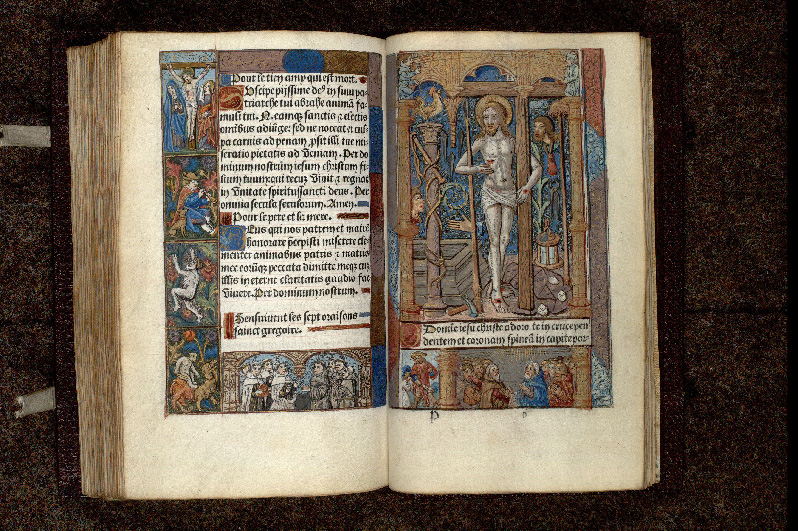 Pour le tien amy qui est mort.
Uscipe pijssime deꝰ in sinu pa-
triarche tui abrahe animā fa-
muli tui. N. eamqȝ sanctis ⁊ electis
omnibus adiūge: sed ne noceat ei cul-
pa carnis ad penam ꝓsit illi tue mi-
seratio pietatis ad veniam. Per do
minum nostrum iesum christum fi-
lium tuum qui tecū viuit ⁊ regnat
in vnitate spiritussancti deus. Per
omnia secula seculorum. Amen.
Pour se pere et sa mere.
Eus qui nos patrem et matrē
honorare p̄cepisti miserere cle-
menter animabus patris ⁊ matris
mee eorūqȝ peccata dimitte meqȝ cū
illis in eterne claritatis gaudio fac
viuere. Per dominum nostrum.
Sensuiuent les sept oraisons
sainct gregoire.
Domine iesu christe adoro te in cruce pen
dentem et coronam spineā in capite por